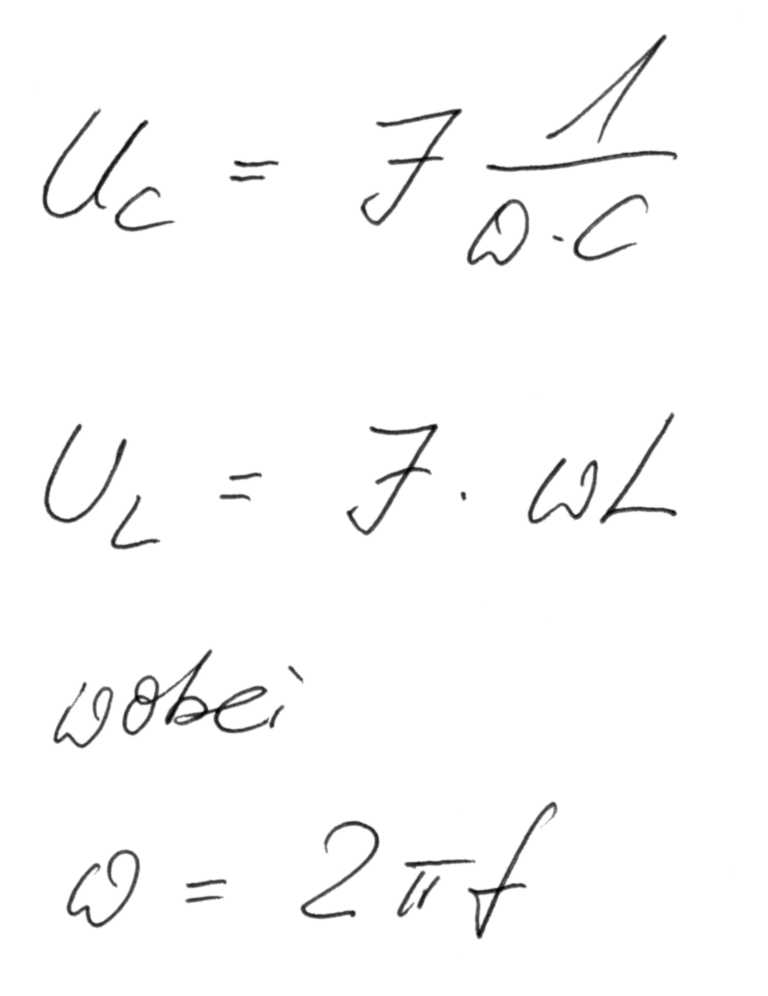 U_C = I 1/(ω · C)
U_L = I · ωL
wobei
ω = 2πf